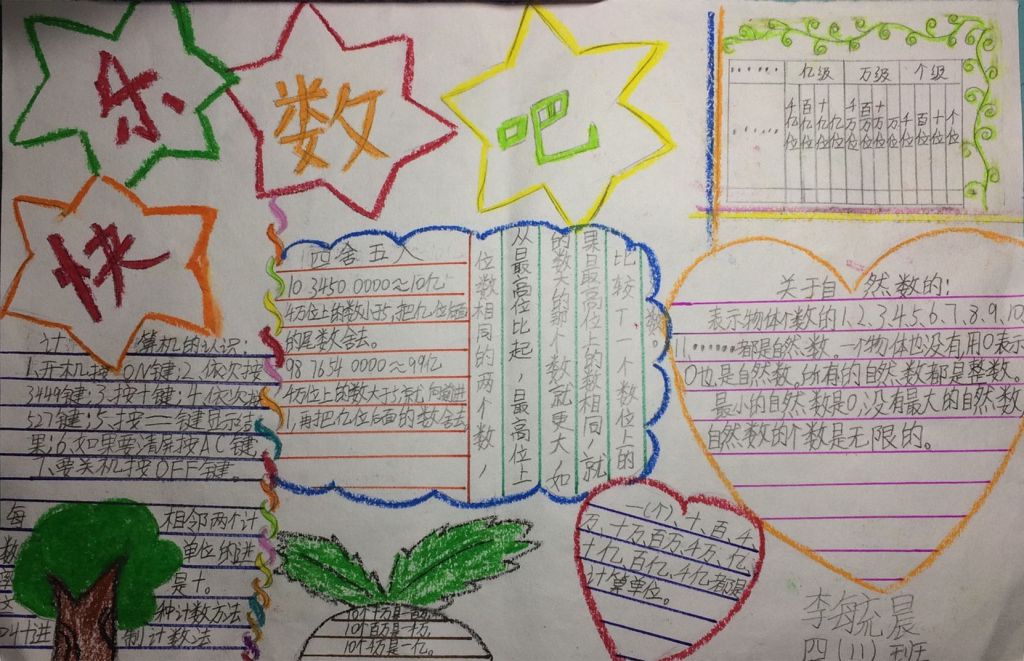 乐
数
吧
快
亿级 万级 个级
千亿位 百亿位 十亿位 亿位 千万位 百万位 十万位 万位 千位 百位 十位 个位
四舍五入
10 3450 0000≈10亿
4万位上的数小于5,把亿位后面
的尾数舍去。
98 7654 0000≈99亿
1,再把亿位后面的数舍去
位数相同的两个数,
从最高位比起,最高位上
的数大的那个数就更大,如
果最高位上的数相同,就
比较下一个数位上的
数。
关于自然数的:
表示物体个数的1、2、3、4、5、6、7、8、9、10
11、……都是自然数。一个物体也没有用0表示
0也是自然数。所有的自然数都是整数。
最小的自然数是0,没有最大的自然数,
自然数的个数是无限的。
计算机的认识:
1、开机按ON键;2、依次按
3444键;3、按十键;4、依次按
527键;5、按=键显示结
果;6、如果要清屏按AC键
7、要关机按OFF键。
每 相邻两个计
数 单位的进
是十。
种计数方法
叫十进 制计数法
10个十万是一百万,
10个百万是一千万,
10个千万是一亿。
一(个)、十、百、千
万、十万、百万、千万、亿、
十亿、百亿、千亿都是
计算单位。
李每充晨
四(11)班